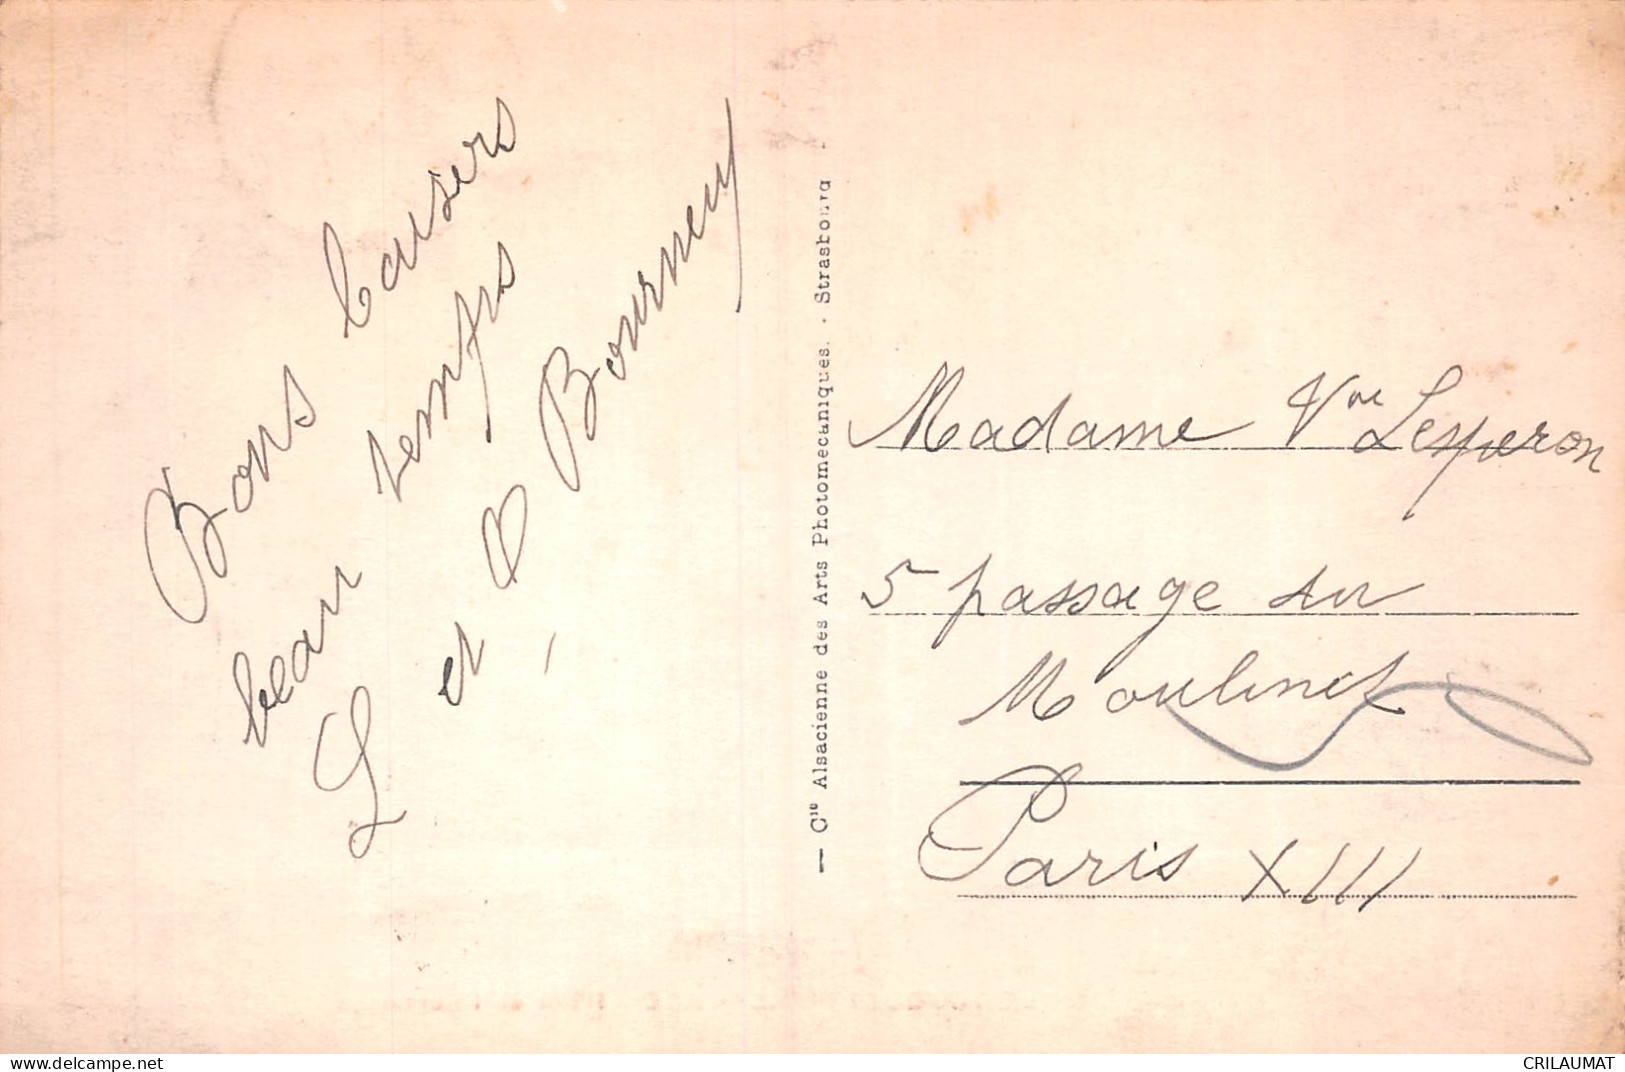 Bons baisers
beau temps
L et O Bourney
— Cie Alsacienne des Arts Photomecaniques. - Strasbourg -
Madame Vve Lesperon
5 passage du
Moulinet
Paris XIII
www.delcampe.net
CRILAUMAT